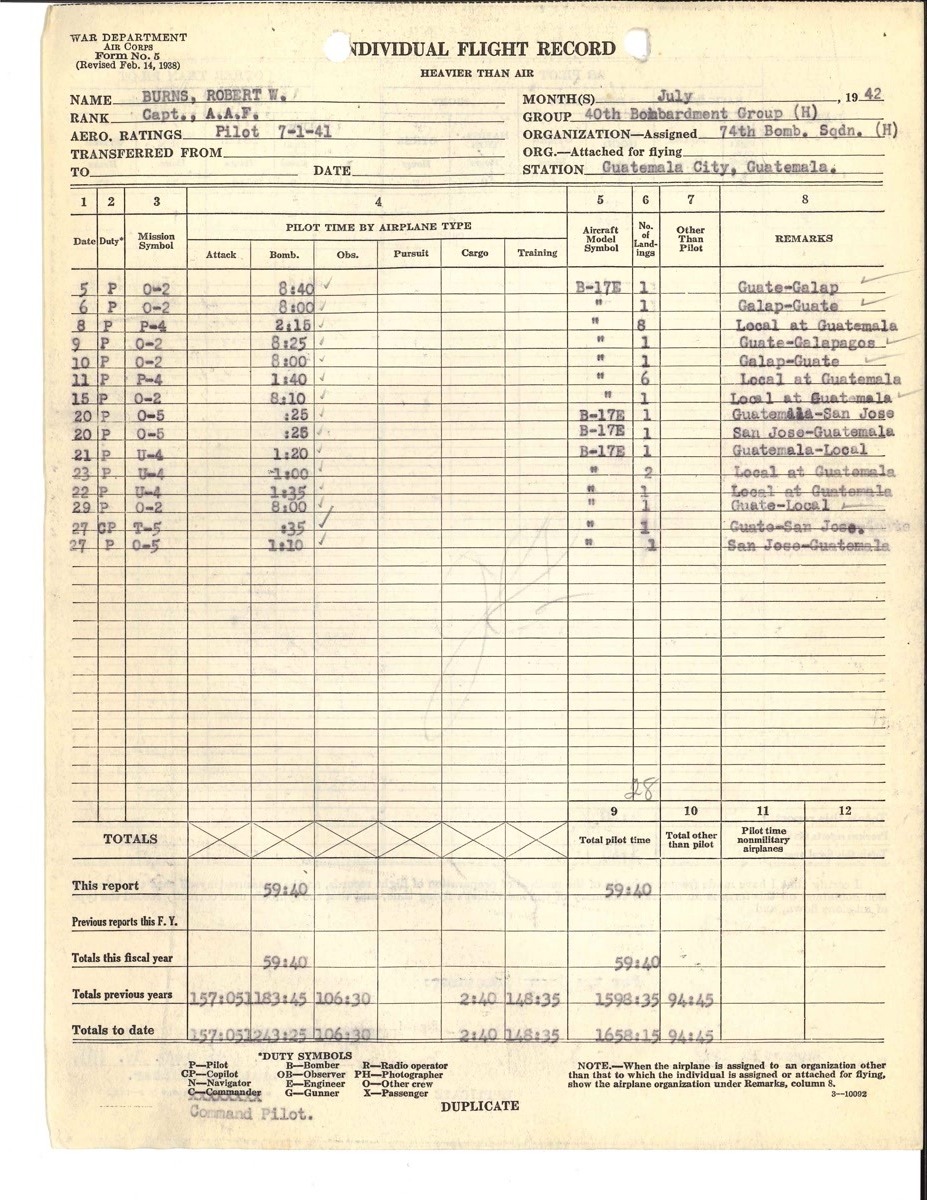 WAR DEPARTMENT
AIR CORPS
Form No. 5
(Revised Feb. 14, 1938)
NDIVIDUAL FLIGHT RECORD
HEAVIER THAN AIR
NAME BURNS, ROBERT W. MONTH(S) July , 19 42
RANK Capt., A.A.F. GROUP 40th Bombardment Group (H)
AERO. RATINGS Pilot 7-1-41 ORGANIZATION—Assigned 74th Bomb. Sqdn. (H)
TRANSFERRED FROM ORG.—Attached for flying
TO DATE STATION Guatemala City, Guatemala.
1 2 3 4 5 6 7 8
Date Duty* Mission Symbol PILOT TIME BY AIRPLANE TYPE Aircraft Model Symbol No. of Land-ings Other Than Pilot REMARKS
Attack Bomb. Obs. Pursuit Cargo Training
5 P O-2 8:40 ✓ B-17E 1 Guate-Galap ✓
6 P O-2 8:00 ✓ " 1 Galap-Guate ✓
8 P P-4 2:15 ✓ " 8 Local at Guatemala
9 P O-2 8:25 ✓ " 1 Guate-Galapagos ✓
10 P O-2 8:00 ✓ " 1 Galap-Guate ✓
11 P P-4 1:40 ✓ " 6 Local at Guatemala
15 P O-2 8:10 ✓ " 1 Local at Guatemala ✓
20 P O-5 :25 ✓ B-17E 1 Guatemala-San Jose
20 P O-5 :25 ✓ B-17E 1 San Jose-Guatemala
21 P U-4 1:20 ✓ B-17E 1 Guatemala-Local
23 P U-4 1:00 ✓ " 2 Local at Guatemala
22 P U-4 1:35 ✓ " 1 Local at Guatemala
29 P O-2 8:00 ✓ " 1 Guate-Local ✓
27 CP T-5 :35 ✓ " 1 Guate-San Jose.
27 P O-5 1:10 ✓ " 1 San Jose-Guatemala
28
9 10 11 12
TOTALS Total pilot time Total other than pilot Pilot time nonmilitary airplanes
This report 59:40 59:40
Previous reports this F. Y.
Totals this fiscal year 59:40 59:40
Totals previous years 157:05 1183:45 106:30 2:40 148:35 1598:35 94:45
Totals to date 157:05 1243:25 106:30 2:40 148:35 1658:15 94:45
*DUTY SYMBOLS
P—Pilot B—Bomber R—Radio operator
CP—Copilot OB—Observer PH—Photographer
N—Navigator E—Engineer O—Other crew
C—Commander G—Gunner X—Passenger
Command Pilot.
NOTE.—When the airplane is assigned to an organization other
than that to which the individual is assigned or attached for flying,
show the airplane organization under Remarks, column 8.
3—10092
DUPLICATE